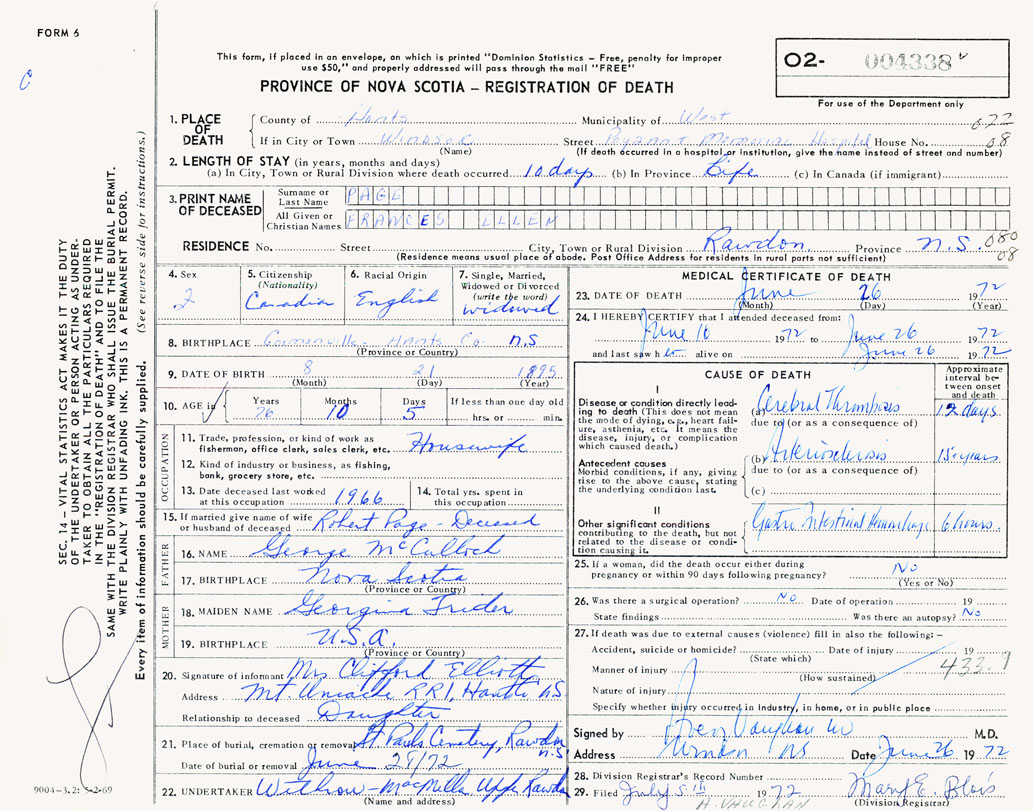 FORM 6
This form, if placed in an envelope, on which is printed "Dominion Statistics – Free, penalty for improper
use $50," and properly addressed will pass through the mail "FREE"
PROVINCE OF NOVA SCOTIA – REGISTRATION OF DEATH
O2- 004338
For use of the Department only
1. PLACE OF DEATH
County of Hants Municipality of West 622
If in City or Town Windsor Street Payzant Memorial Hospital House No. 08
(Name) (If death occurred in a hospital or institution, give the name instead of street and number)
2. LENGTH OF STAY (in years, months and days)
(a) In City, Town or Rural Division where death occurred 10 days (b) In Province Life (c) In Canada (if immigrant)
3. PRINT NAME OF DECEASED
Surname or Last Name PAGE
All Given or Christian Names FRANCES ELLEN
RESIDENCE No. Street City, Town or Rural Division Rawdon Province N.S. 080
08
(Residence means usual place of abode. Post Office Address for residents in rural parts not sufficient)
4. Sex 2
5. Citizenship (Nationality) Canadian
6. Racial Origin English
7. Single, Married, Widowed or Divorced (write the word) widowed
8. BIRTHPLACE Hants Co. N.S
(Province or Country)
9. DATE OF BIRTH 8 21 1895
(Month) (Day) (Year)
10. AGE in Years 76 Months 10 Days 5 If less than one day old hrs. or min.
OCCUPATION
11. Trade, profession, or kind of work as fisherman, office clerk, sales clerk, etc. Housewife
12. Kind of industry or business, as fishing, bank, grocery store, etc.
13. Date deceased last worked at this occupation 1966
14. Total yrs. spent in this occupation
15. If married give name of wife or husband of deceased Robert Page - Deceased
FATHER
16. NAME George McCulloch
17. BIRTHPLACE Nova Scotia
(Province or Country)
MOTHER
18. MAIDEN NAME Georgina
19. BIRTHPLACE U.S.A.
(Province or Country)
20. Signature of informant Mrs Clifford Elliott
Address Mt. Uniacke RR1, Hants N.S
Relationship to deceased Daughter
21. Place of burial, cremation or removal St Pauls Cemetery, Rawdon N.S
Date of burial or removal June 28/72
22. UNDERTAKER Withrow - MacMillan Upper Rawdon
(Name and address)
MEDICAL CERTIFICATE OF DEATH
23. DATE OF DEATH June 26 1972
(Month) (Day) (Year)
24. I HEREBY CERTIFY that I attended deceased from:
June 16 1972 to June 26 1972
and last saw her alive on June 26 1972
CAUSE OF DEATH
Approximate interval between onset and death
I
Disease or condition directly leading to death (This does not mean the mode of dying, e.g., heart failure, asthenia, etc. It means the disease, injury, or complication which caused death.)
(a) Cerebral Thrombosis 12 days
due to (or as a consequence of)
Antecedent causes
Morbid conditions, if any, giving rise to the above cause, stating the underlying condition last.
(b) Arteriosclerosis 15 years
due to (or as a consequence of)
(c)
II
Other significant conditions contributing to the death, but not related to the disease or condition causing it.
Gastro Intestinal Hemorrhage 6 hours
25. If a woman, did the death occur either during pregnancy or within 90 days following pregnancy? No
(Yes or No)
26. Was there a surgical operation? No Date of operation 19
State findings Was there an autopsy? No
27. If death was due to external causes (violence) fill in also the following: –
Accident, suicide or homicide? Date of injury 19
(State which) 433.9
Manner of injury
(How sustained)
Nature of injury
Specify whether injury occurred in industry, in home, or in public place
Signed by Vaughan M.D.
Address Windsor NS Date June 26 1972
28. Division Registrar's Record Number
29. Filed July 5th 1972 Mary E. Blois
(Division Registrar)
A. VAUGHAN
SEC. 14 – VITAL STATISTICS ACT MAKES IT THE DUTY
OF THE UNDERTAKER OR PERSON ACTING AS UNDER-
TAKER TO OBTAIN ALL THE PARTICULARS REQUIRED
IN THE "REGISTRATION OF DEATH" AND TO FILE THE
SAME WITH THE DIVISION REGISTRAR WHO SHALL ISSUE THE BURIAL PERMIT.
WRITE PLAINLY WITH UNFADING INK. THIS IS A PERMANENT RECORD.
Every item of information should be carefully supplied. (See reverse side for instructions.)